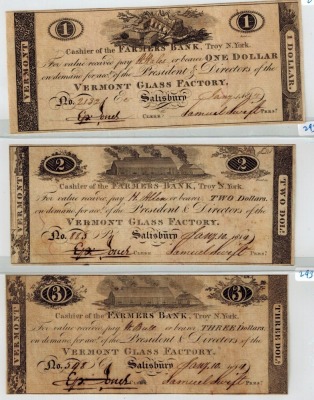 VERMONT
1
1
1 DOLLAR.
Cashier of the FARMERS BANK, Troy N.York.
For value receive pay H. Allen or bearer ONE DOLLAR
on demand for acc.t of the President & Directors of the
VERMONT GLASS FACTORY.
No. 2132 Salisbury
Clerk Samuel Swift Pres.t
VERMONT
2
2
TWO DOL.
Cashier of the FARMERS BANK, Troy N.York.
For value receive, pay H. Allen or bearer, TWO Dollars,
on demand for acc.t of the President & Directors of the
VERMONT GLASS FACTORY.
No. 883 Salisbury
Clerk Samuel Swift Pres.t
293
VERMONT
3
3
THREE DOL.
Cashier of the FARMERS BANK, Troy N.York.
For value receive pay or bearer THREE Dollars.
on demand for acc.t of the President & Directors of the
VERMONT GLASS FACTORY.
No. 598 Salisbury
Clerk Samuel Swift Pres.t